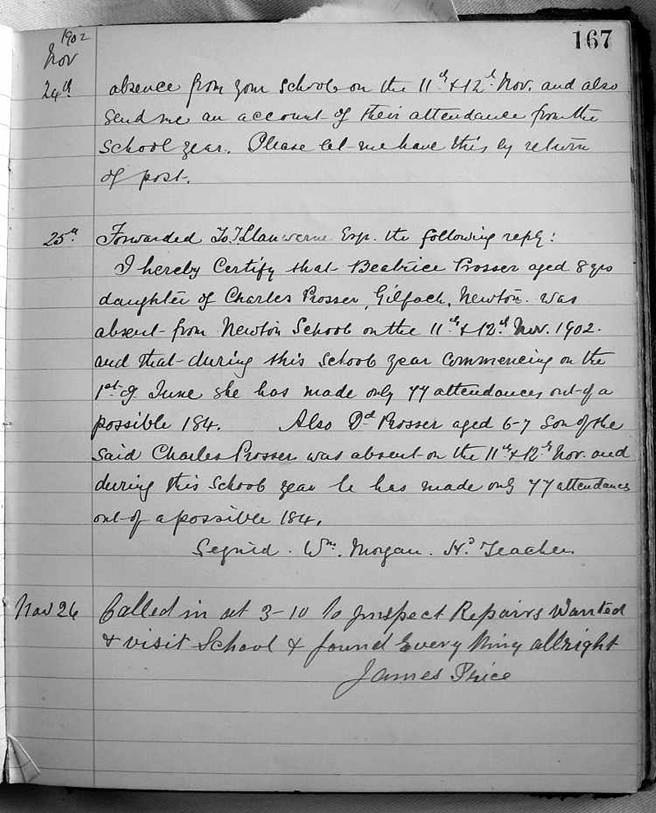 1902
167
Nov
24th absence from your School on the 11th & 12th Nov. and also
Send me an account of their attendance from the
School year. Please let me have this by return
of post.
25th Forwarded To T Llanwerne Esq. the following reply:
I hereby Certify that Beatrice Prosser aged 8 yrs
daughter of Charles Prosser, Gilfach, Newton. was
absent from Newton School on the 11th & 12th Nov. 1902.
and that during this School year Commencing on the
1st of June she has made only 77 attendances out of a
possible 184. Also Dd Prosser aged 6-7 Son of the
Said Charles Prosser was absent on the 11th & 12th Nov. and
during this School year he has made only 77 attendances
out of a possible 184.
Signid. Wm. Morgan. Hd Teacher.
Nov 26 Called in at 3-10 to Inspect Repairs Wanted
& visit School & found Every thing allright
James Price